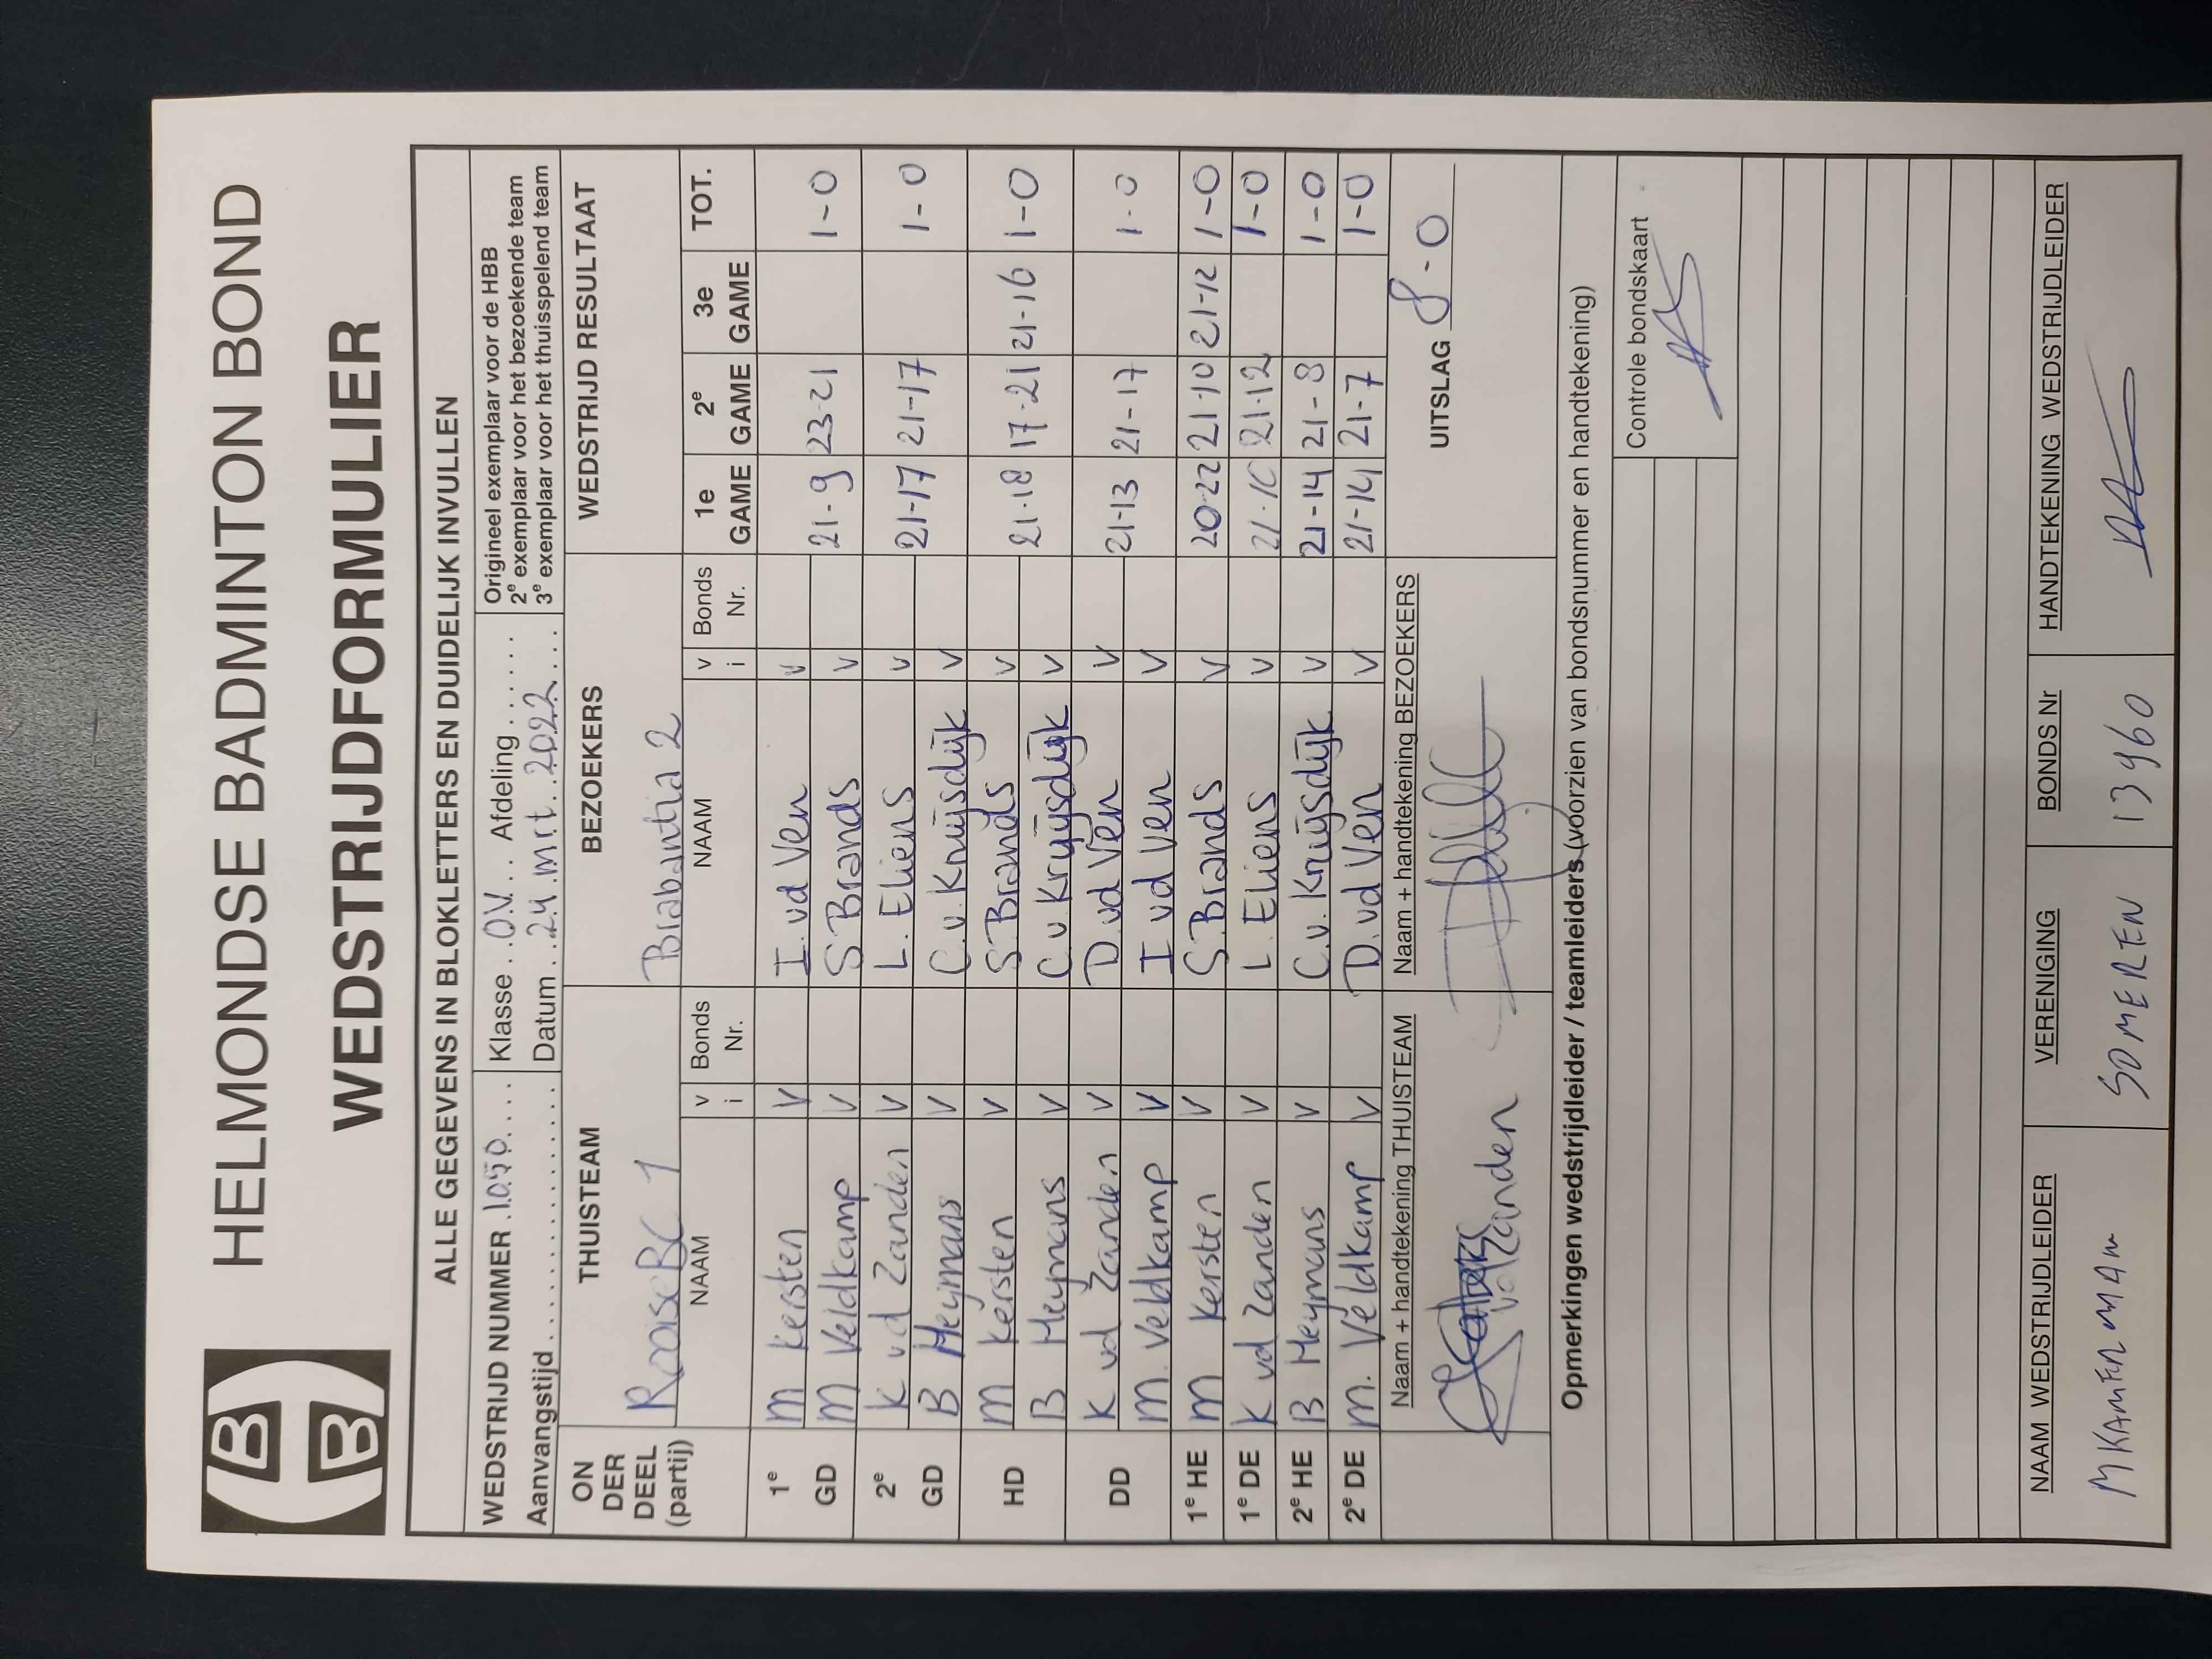 HELMONDSE BADMINTON BOND
WEDSTRIJDFORMULIER
ALLE GEGEVENS IN BLOKLETTERS EN DUIDELIJK INVULLEN
WEDSTRIJD NUMMER 1050 Klasse O.V. Afdeling
Aanvangstijd Datum 24 mrt. 2022
Origineel exemplaar voor de HBB
2e exemplaar voor het bezoekende team
3e exemplaar voor het thuisspelend team
ON DER DEEL (partij) THUISTEAM BEZOEKERS WEDSTRIJD RESULTAAT
RooiseBC 1 Brabantia 2
NAAM v i Bonds Nr. NAAM v i Bonds Nr. 1e GAME 2e GAME 3e GAME TOT.
1e GD M Kersten V I. vd Ven V
M Veldkamp V S Brands V 21-9 23-21 1-0
2e GD K vd Zanden V L. Eliens V
B Heymans V C.v. Kruijsdijk V 21-17 21-17 1-0
HD M Kersten V S. Brands V
B Heymans V C.v. Kruijsdijk V 21-18 17-21 21-16 1-0
DD K vd Zanden V D. vd Ven V
M. Veldkamp V I vd Ven V 21-13 21-17 1-0
1e HE M Kersten V S. Brands V 20-22 21-10 21-12 1-0
1e DE K vd Zanden V L. Eliens V 21-10 21-12 1-0
2e HE B Heymans V C.v. Kruijsdijk V 21-14 21-8 1-0
2e DE M. Veldkamp V D. vd Ven V 21-14 21-7 1-0
Naam + handtekening THUISTEAM Naam + handtekening BEZOEKERS UITSLAG 8-0
vd Zanden
Opmerkingen wedstrijdleider / teamleiders (voorzien van bondsnummer en handtekening)
Controle bondskaart
NAAM WEDSTRIJDLEIDER VERENIGING BONDS Nr HANDTEKENING WEDSTRIJDLEIDER
SOMEREN 13960